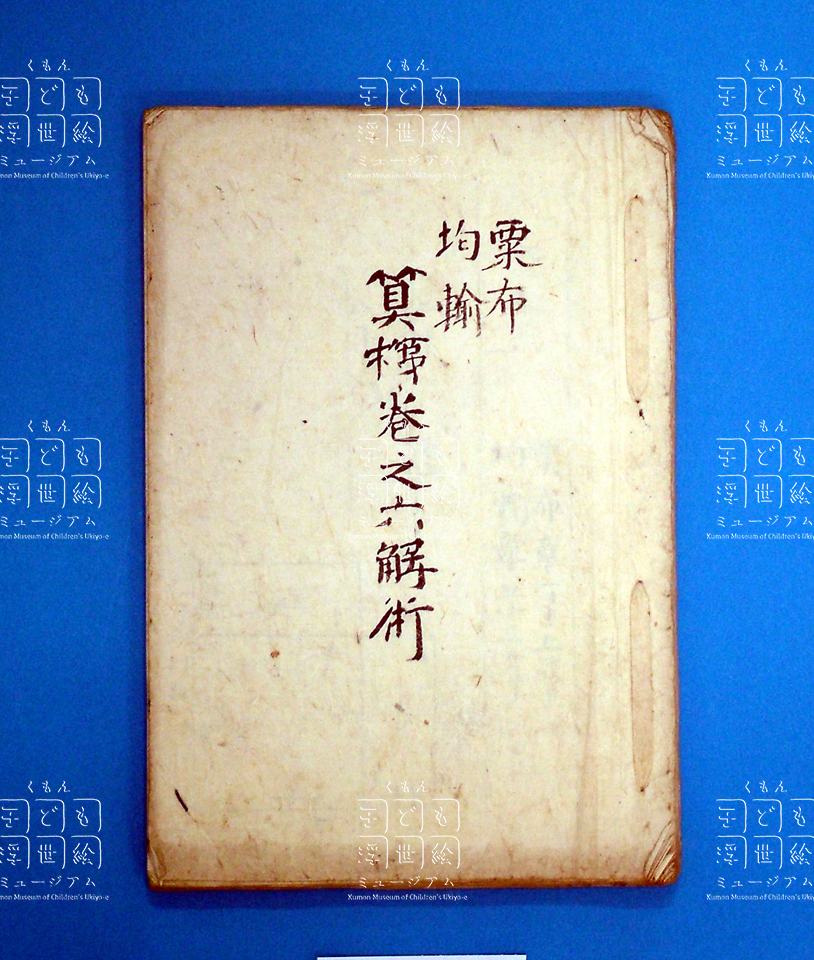 粟布
均輸
算梯巻之六解術
くもん
子ども
浮世絵
ミュージアム
Kumon Museum of Children's Ukiyo-e